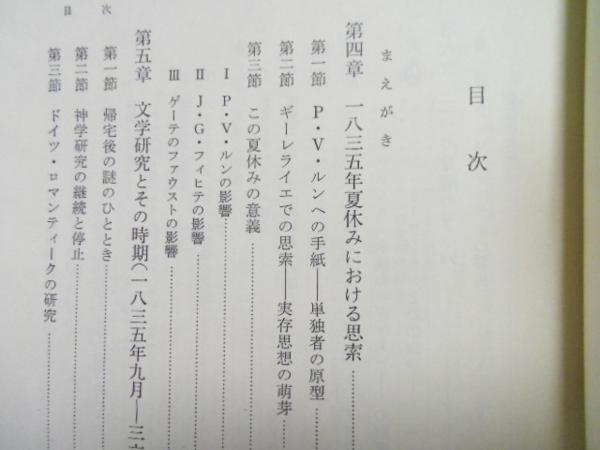 目次
まえがき
第四章 一八三五年夏休みにおける思索……………
第一節 P・V・ルンへの手紙――単独者の原型……
第二節 ギーレライエでの思索――実存思想の萌芽……
第三節 この夏休みの意義……………………………
I P・V・ルンの影響……………………………
II J・G・フィヒテの影響……………………………
III ゲーテのファウストの影響……………………………
第五章 文学研究とその時期（一八三五年九月―三六
第一節 帰宅後の謎のひととき……………………………
第二節 神学研究の継続と停止……………………………
第三節 ドイツ・ロマンティークの研究……………
目次